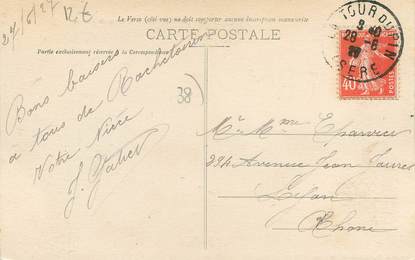 27/6/27 12 €
Le Verso (côté vue) ne doit comporter aucune inscription manuscrite
CARTE POSTALE
Partie exclusivement réservée à la Correspondance
LA TOUR DU PIN
28 -6
ISERE
40
POSTES
38
Bons baisers
à tous de
Votre Nièce
Mr Mme
294 Avenue Jean Jaurès
Lyon
Rhone